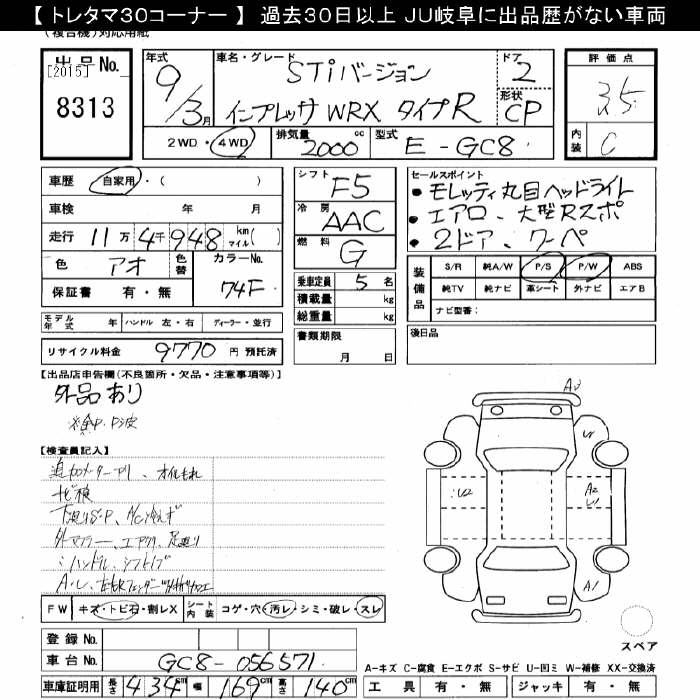 【 トレタマ30コーナー 】 過去30日以上 JU岐阜に出品歴がない車両
(複合機)対応用紙
出品No.
[2015]
8313
年式
9/3月
車名・グレード
STiバージョン
インプレッサ WRX タイプR
ドア
2
形状
CP
評価点
3.5
内装
C
2WD・4WD
排気量
2000cc
型式
E-GC8
車歴
自家用・( )
車検 年 月
走行 11万4千948 km マイル( )
色
アオ
色替
カラーNo.
74F
保証書 有・無
モデル年式 年 ハンドル 左・右 ディーラー・並行
リサイクル料金 9770 円 預託済
シフト
F5
冷房
AAC
燃料
G
乗車定員 5 名
積載量 kg
総重量 kg
書類期限
月 日
セールスポイント
・モレッティ丸目ヘッドライト
・エアロ、大型Rスポ
・2ドア、クーペ
装備品
S/R 純A/W P/S P/W ABS
純TV 純ナビ 革シート 外ナビ エアB
ナビ型番:
後日品
【出品店申告欄(不良箇所・欠品・注意事項等)】
外品あり
【検査員記入】
追加メーター、オイルもれ
下廻りS・P、A/C冷えず
外マフラー、エアクリ、足廻り
ハンドル、シフトノブ
A・L、
FW キズ・トビ石・割レX
シート内装 コゲ・穴・汚レ・シミ・破レ・スレ
登録No.
車台No.
GC8-056571
車庫証明用 長さ 434cm 幅 169cm 高さ 140cm
A2
U2
A2
A1
スペア
A-キズ C-腐食 E-エクボ S-サビ U-凹ミ W-補修 XX-交換済
工具 有・無 ジャッキ 有・無